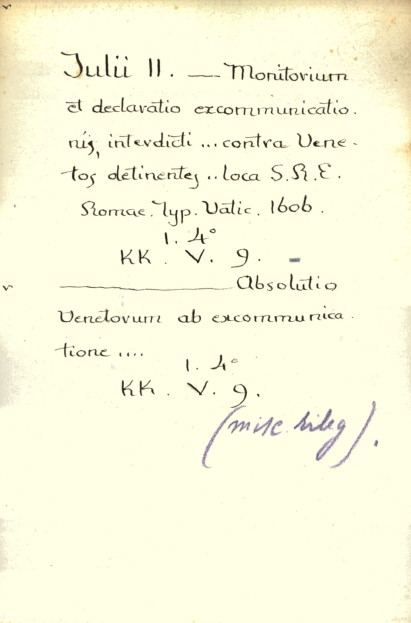 Julii II. — Monitorium
et declaratio excommunicatio.
nis, interdicti ... contra Vene-
tos detinentes .. loca S.R.E.
Romae. Typ. Vatic. 1606.
1. 4°
KK. V. 9. -
——— Absolutio
Venetorum ab excommunica.
tione ....
1. 4°
KK. V. 9.
(misc. rileg).